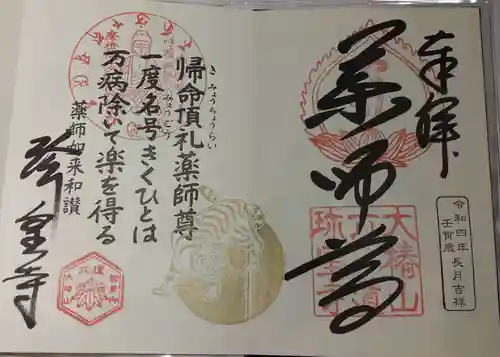 奉拝
薬師尊
令和四年長月吉祥
壬寅歳
大椿山
六道
珍皇寺
き みょうちょうらい
帰命頂礼薬師尊
みょうごう
一度名号きくひとは
万病除いて楽を得る
薬師如来和讃
珍皇寺